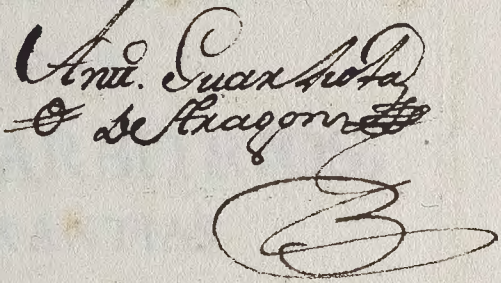 Antt.º Guarnota
de Aragon